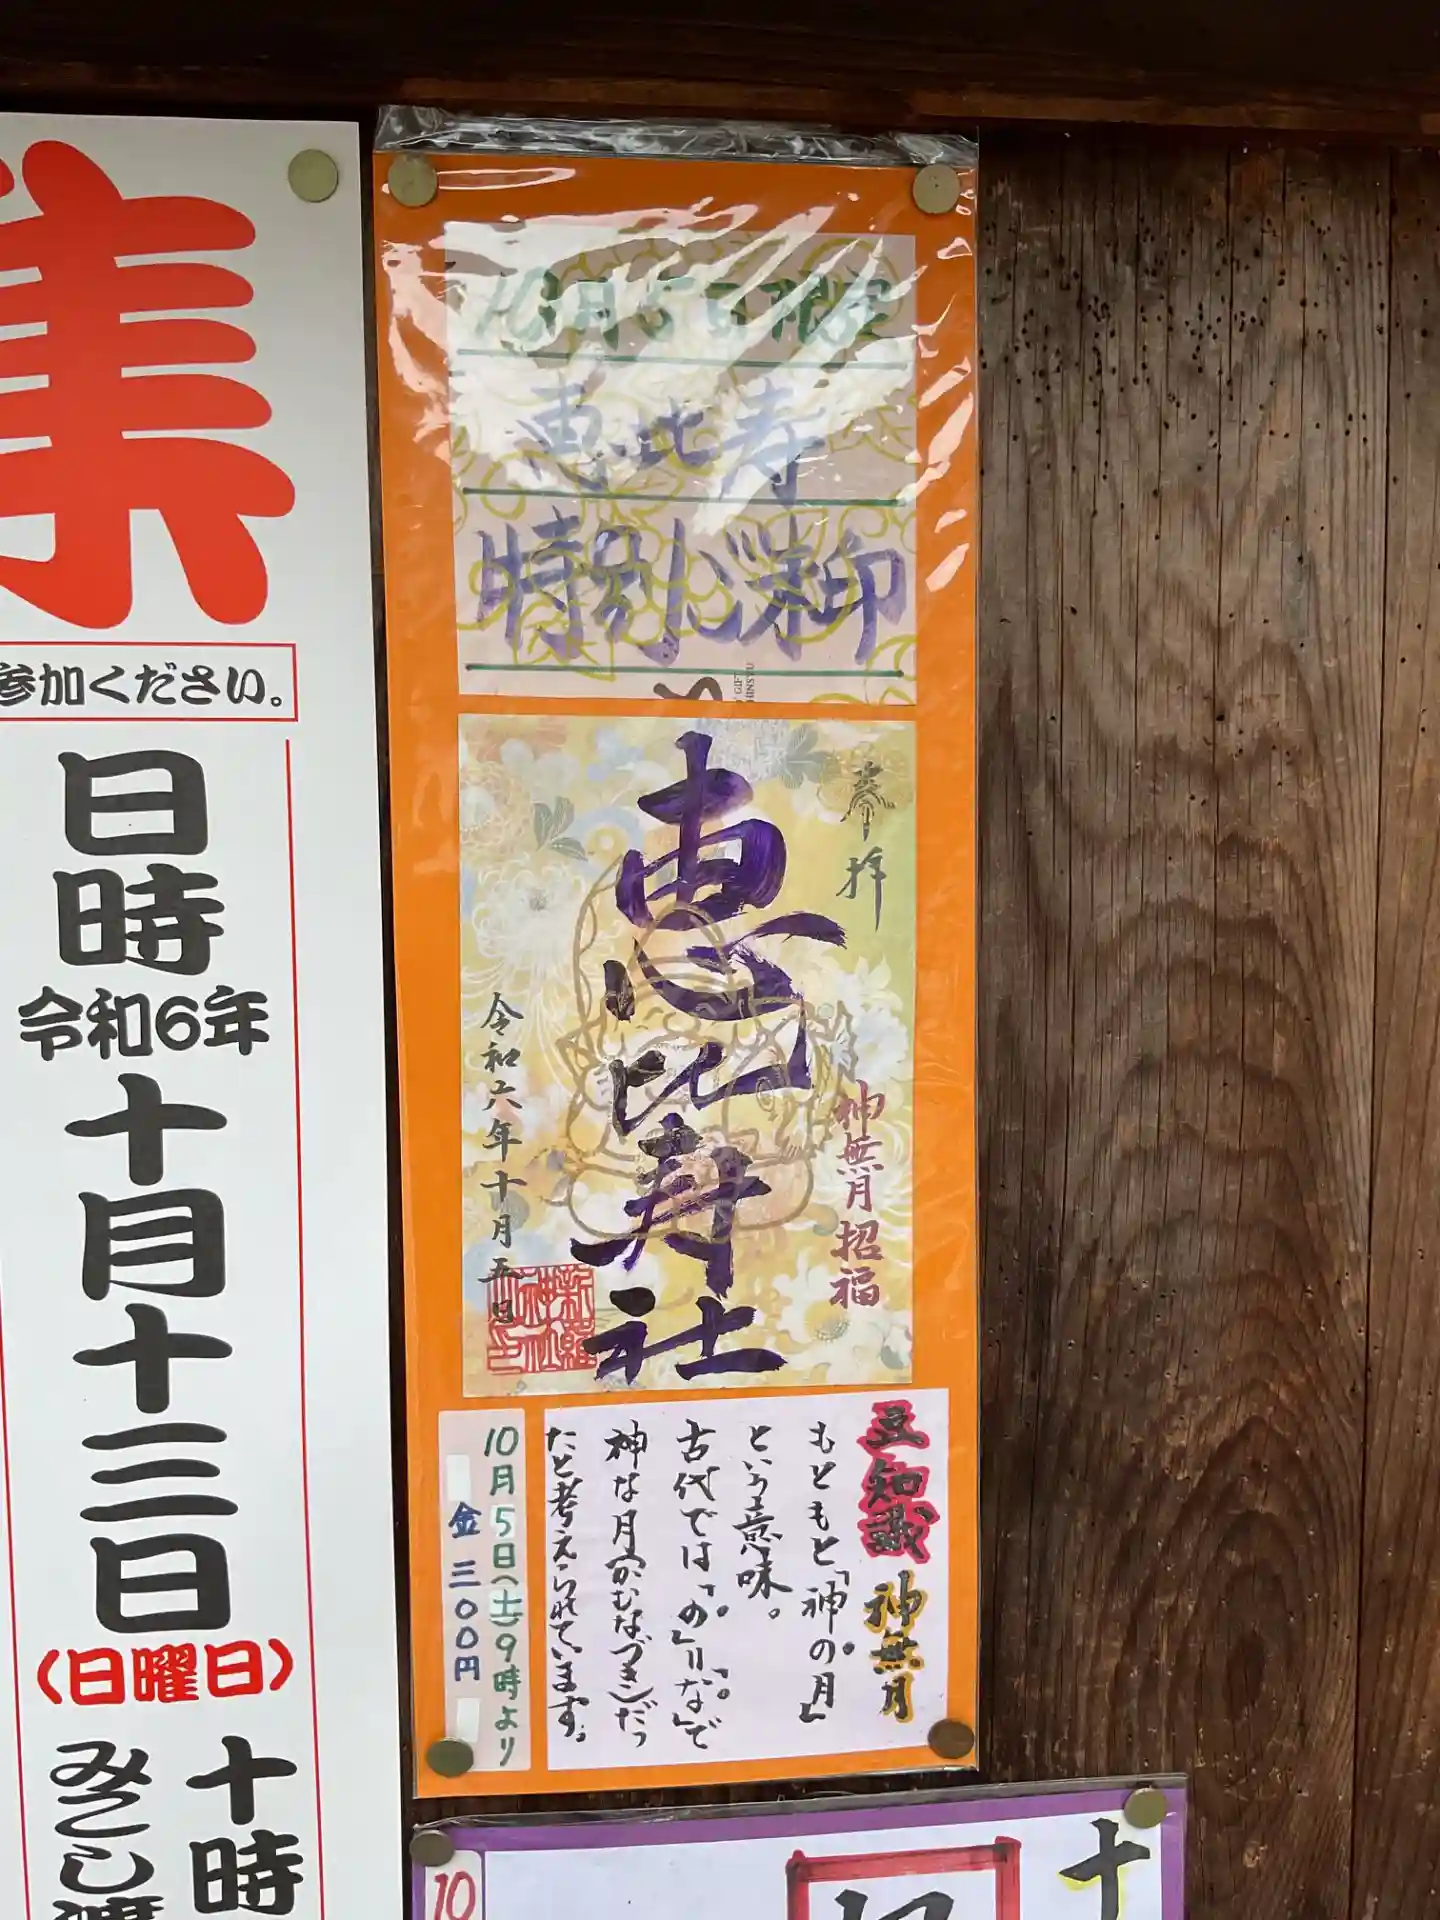 集
参加ください。
日時
令和6年
十月十三日
(日曜日)
十時
みこし渡
10月5日限定
恵比寿
特別ご朱印
奉拝
神無月招福
恵比寿社
令和六年十月五日
豆知識 神無月
もともと「神の月」
という意味。
古代では「の」は「な」で
神な月(かむなづき)だっ
たと考えられています。
10月5日(土)9時より
金三〇〇円
十
10